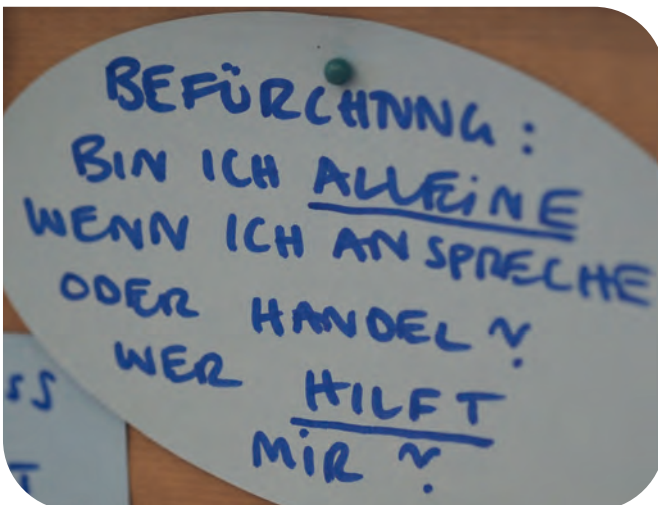 BEFÜRCHTUNG:
BIN ICH ALLEINE
WENN ICH ANSPRECHE
ODER HANDEL?
WER HILFT
MIR?